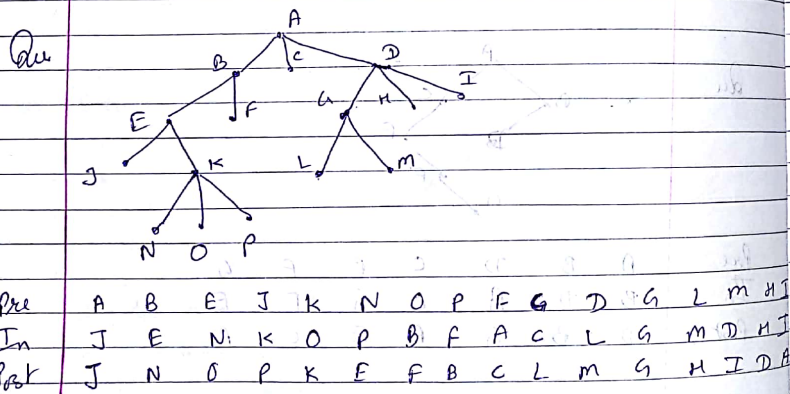 Qu
A
B C D
I
E F G H
J K L M
N O P
Pre A B E J K N O P F G D G L M H I
In J E N K O P B F A C L G M D H I
Post J N O P K E F B C L M G H I D A